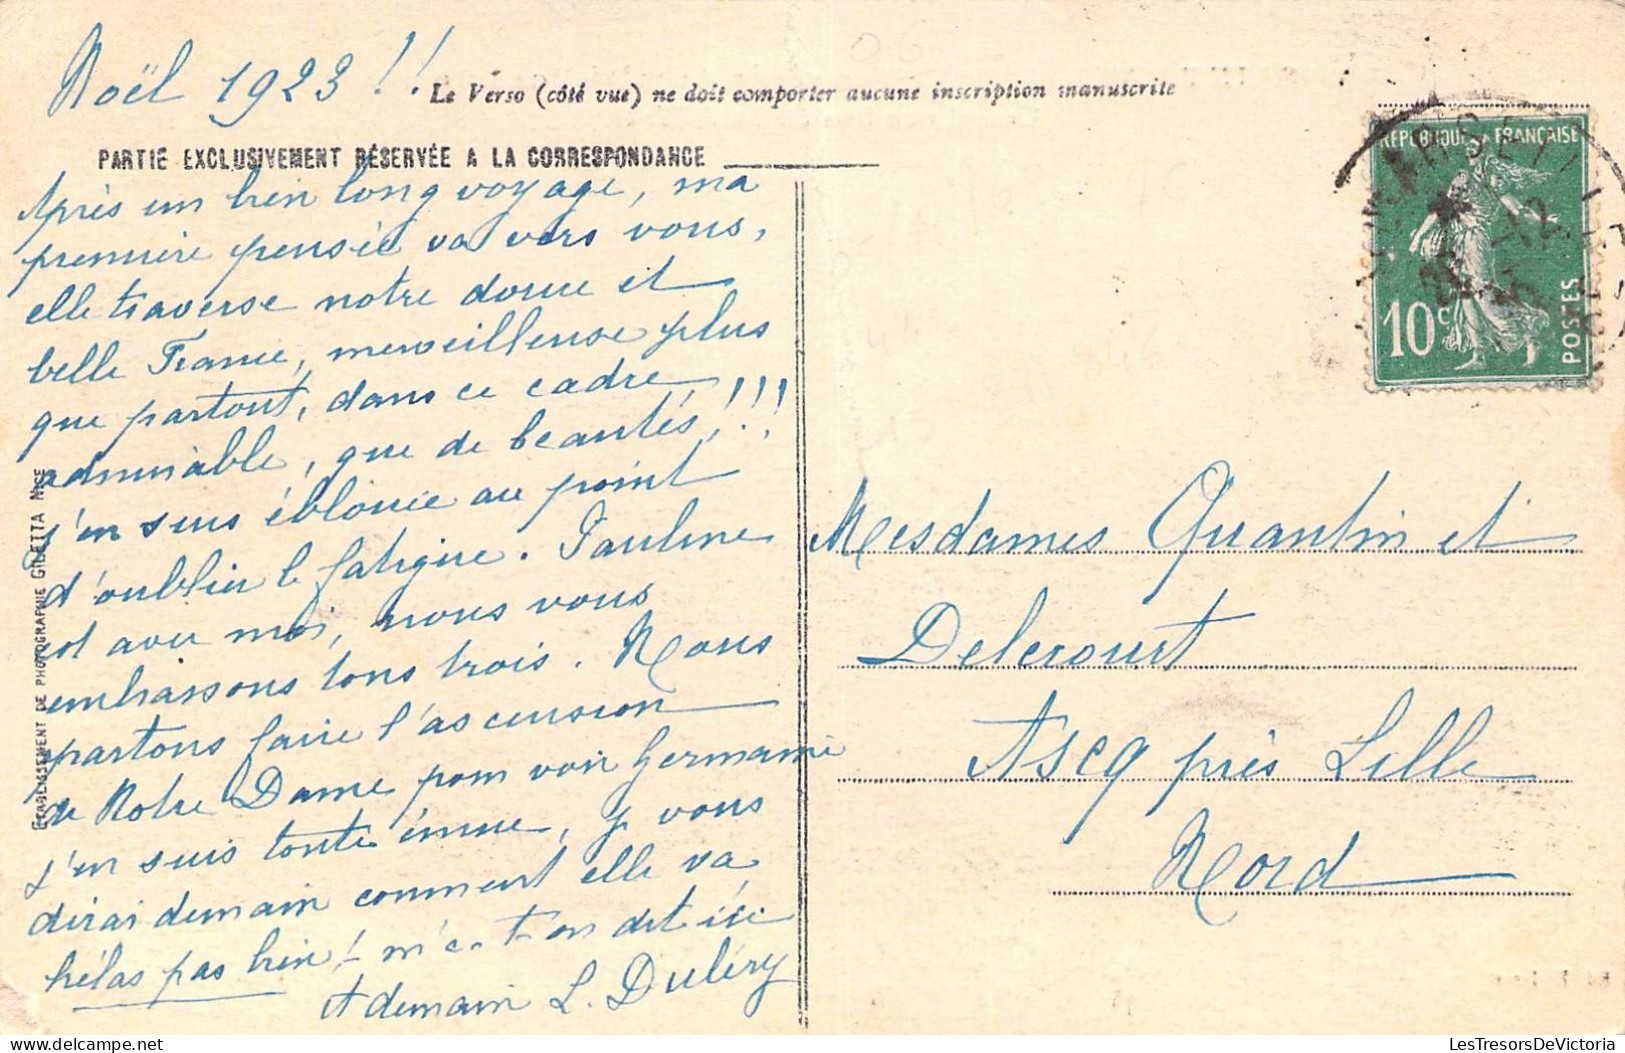 Noël 1923 !!
Le Verso (côté vue) ne doit comporter aucune inscription manuscrite
PARTIE EXCLUSIVEMENT RÉSERVÉE A LA CORRESPONDANCE
Après un bien long voyage, ma
première pensée va vers vous,
elle traverse notre douce et
belle France, merveilleuse plus
que partout, dans ce cadre
admirable, que de beautés,!!!
j'en suis éblouie au point
d'oublier la fatigue. Pauline
et avec moi, nous vous
embrassons tous trois. Nous
partons faire l'ascension
de Notre Dame pour voir Germaine
j'en suis toute émue, je vous
dirai demain comment elle va
hélas pas bien! m'a-t-on dit ici
A demain L. Duléry
ETABLISSEMENT DE PHOTOGRAPHIE GILETTA NICE
REPUBLIQUE FRANÇAISE
10c
POSTES
Mesdames Quantin et
Delecourt
Ascq près Lille
Nord
LesTresorsDeVictoria